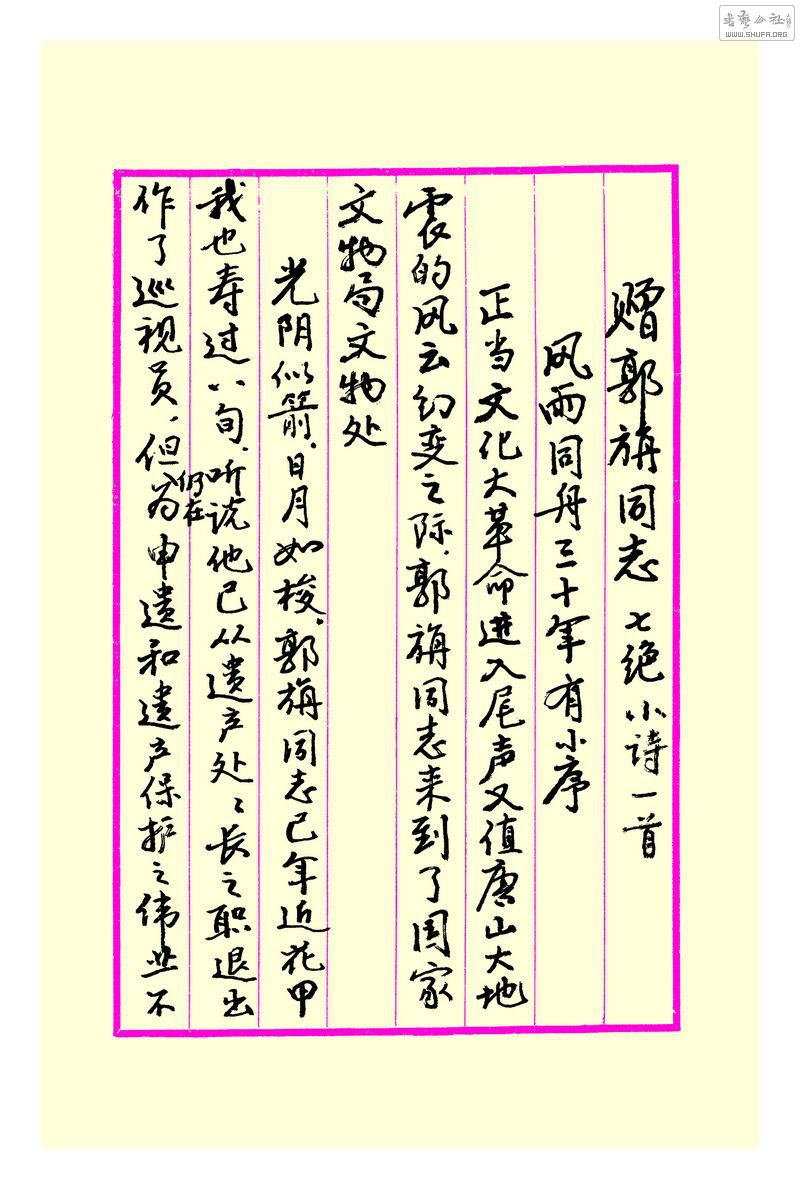 赠郭旃同志 七绝小诗一首
风雨同舟三十年有小序
正当文化大革命进入尾声又值唐山大地
震的风云幻变之际，郭旃同志来到了国家
文物局文物处
光阴似箭，日月如梭，郭旃同志已年近花甲
我也寿过八旬，听说他已从遗产处处长之职退出
作了巡视员，但仍在为申遗和遗产保护之伟业不
書藝公社
WWW.SHUFA.ORG